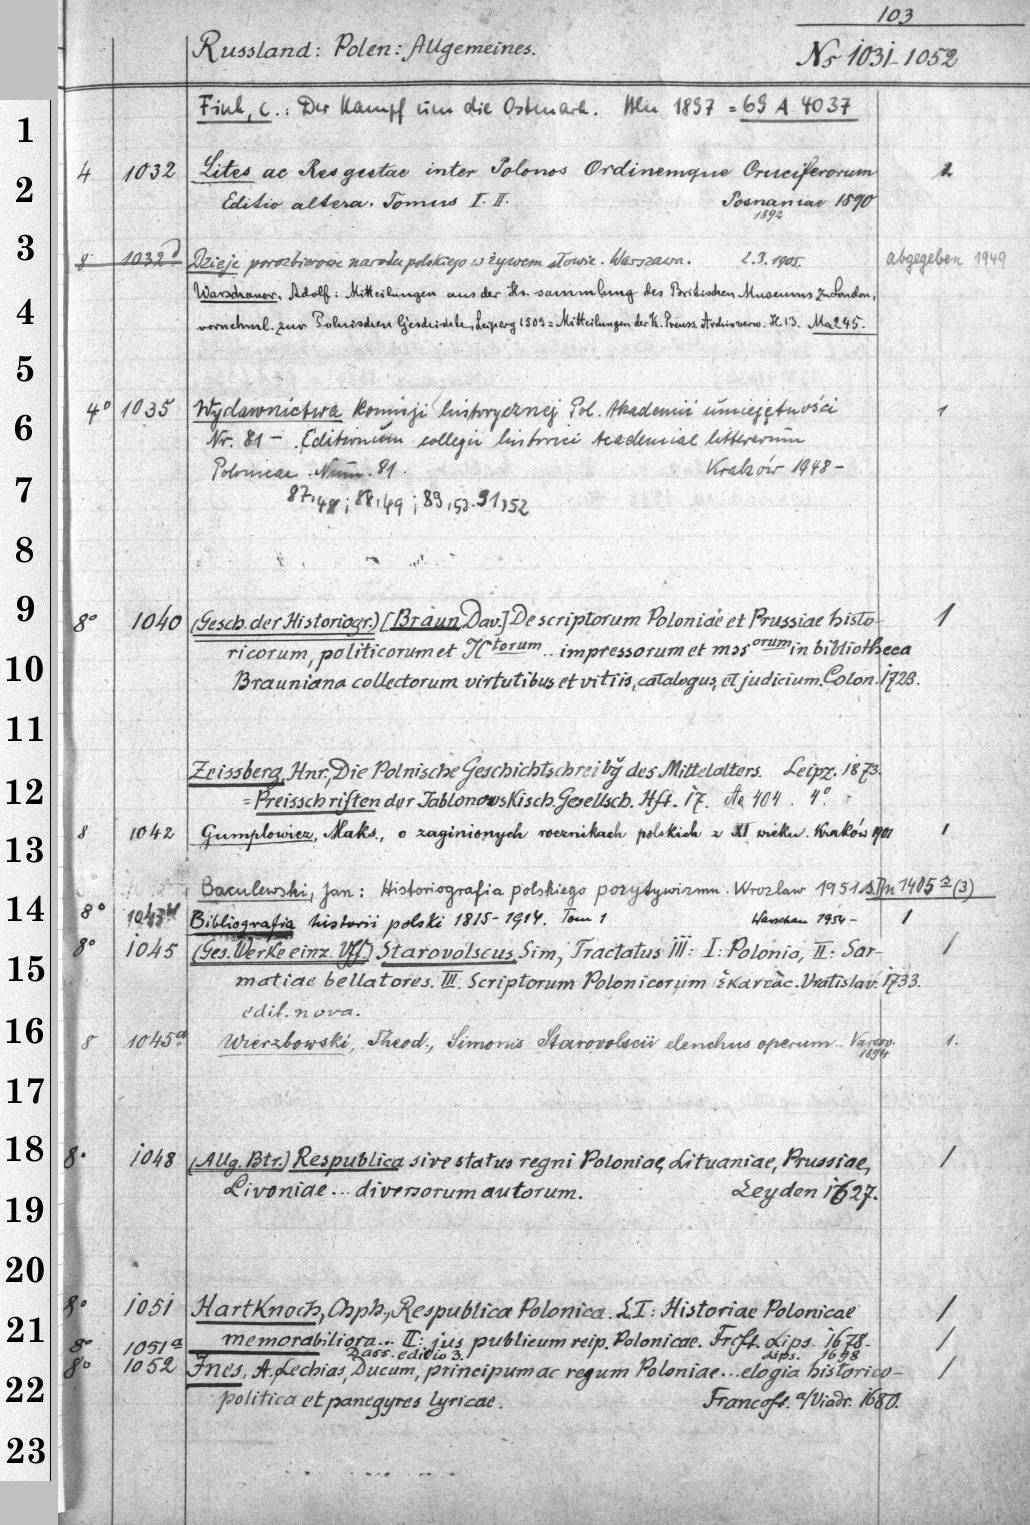 103
Russland: Polen: Allgemeines. Nr 1031-1052
1
Fink, C.: Der Kampf um die Ostmark. Bln 1897 = 69 A 4037
2
4 1032 Lites ac Res gestae inter Polonos Ordinemque Cruciferorum 1.
Editio altera. Tomus I. II. Posnaniae 1890
1892
3
8 1032d Dzieje porozbiorowe narodu polskiego w żywem słowie. Warszawa. 2.3.1905. abgegeben 1949
Warschauer, Adolf: Mitteilungen aus der Hs. sammlung des Britischen Museums zu London,
4
vornehml. zur Polnischen Geschichte, Leipzig 1909 = Mitteilungen der K. Preuss. Archivverw. H 13. Ma 245.
5
6
4° 1035 Wydawnictwa Komisji historycznej Pol. Akademii umiejętności 1
Nr. 81 - Editionum collegii historici Academiae litterarum
Polonicae Num. 81. Kraków 1948-
7
87,48; 88,49; 89,53. 91,52
8
9
8° 1040 (Gesch. der Historiogr.) [Braun, Dav.] De scriptorum Poloniae et Prussiae histo- 1
ricorum, politicorum et JCtorum .. impressorum et mssorum in bibliotheca
10
Brauniana collectorum virtutibus et vitiis, catalogus et judicium. Colon. 1723.
11
12
Zeissberg, Hnr., Die Polnische Geschichtschreibg des Mittelalters. Leipz. 1873.
= Preisschriften der Jablonowskisch. Gesellsch. Hft. 17. Aa 404. 4°
13
8 1042 Gumplowicz, Maks., o zaginionych rocznikach polskich z XI wieku. Kraków 1901 1
Baculewski, Jan: Historiografia polskiego pozytywizmu. Wrozlaw 1951 1405 (3)
14
8° 1043 Bibliografia historii polski 1815-1914. Tom 1 Warschau 1954- 1
8° 1045 (Ges. Werke einz. Vff) Starovolscus, Sim, Tractatus III: I: Polonia, II: Sar- 1
15
matiae bellatores. III. Scriptorum Polonicorum . Vratislav. 1733.
edit. nova.
16
8 1045a Wierzbowski, Theod., Simonis Starovolscii elenchus operum. Varsov. 1.
1894
17
18
8° 1048 (Allg. Btr.) Respublica sive status regni Poloniae, Lituaniae, Prussiae, 1
Livoniae ... diversorum autorum. Leyden 1627.
19
20
21
8° 1051 Hartknoch, Chph., Respublica Polonica. L I: Historiae Polonicae 1
memorabiliora... II: jus publicum reip. Polonicae. Frcft. Lips. 1678. 1
8° 1051a Dass. editio 3. Lips. 1698
22
8° 1052 Jnes, A. Lechias, Ducum, principum ac regum Poloniae ... elogia historico- 1
politica et panegyres lyricae. Francoft. a/Viadr. 1680.
23